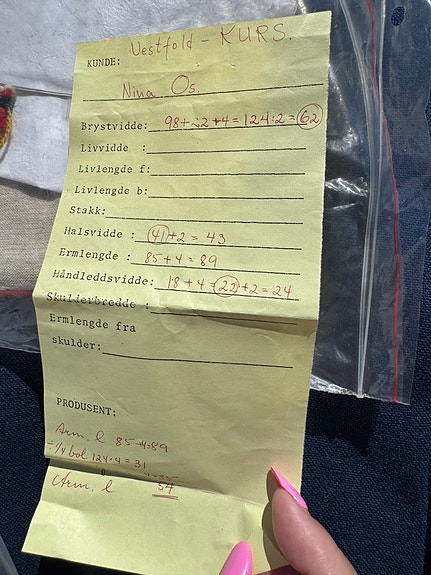 Vestfold - KURS.
KUNDE:
Nina Os.
Brystvidde: 98+22+4=124:2=62
Livvidde :
Livlengde f:
Livlengde b:
Stakk:
Halsvidde : 41+2=43
Ermlengde : 85+4=89
Håndleddsvidde: 18+4=22+2=24
Skulderbredde :
Ermlengde fra
skulder:
PRODUSENT:
Arm. l 85+4=89
-1/4 bol 124:4=31
Arm. l 54